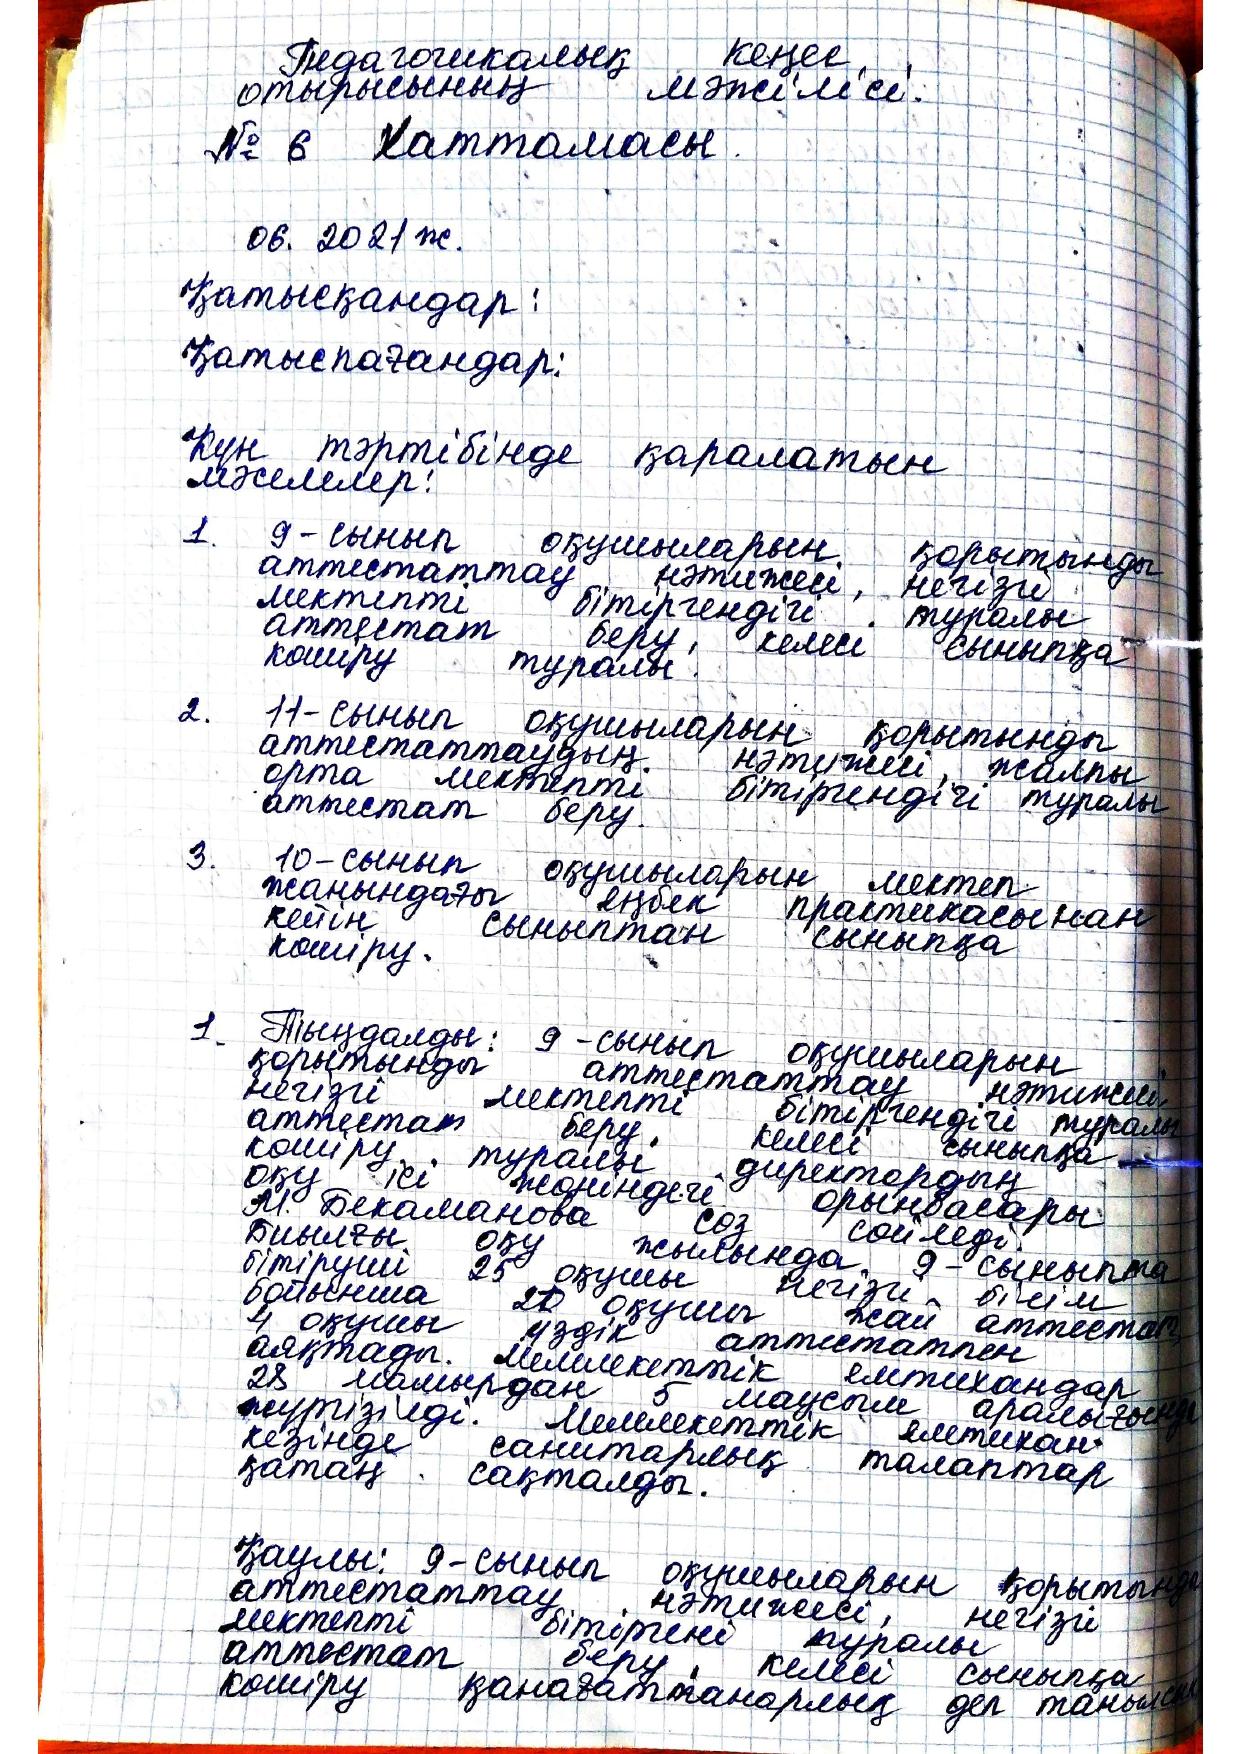 Педагогикалық кеңес
отырысының мәжілісі.
№ 6 Хаттамасы.
06. 2021 ж.
Қатысқандар:
Қатыспағандар:
Күн тәртібінде қаралатын
мәселелер:
1. 9-сынып оқушыларын қорытынды
аттестаттау нәтижесі, негізгі
мектепті бітіргендігі туралы
аттестат беру, келесі сыныпқа
көшіру туралы.
2. 11-сынып оқушыларын қорытынды
аттестаттаудың нәтижесі, жалпы
орта мектепті бітіргендігі туралы
аттестат беру.
3. 10-сынып оқушыларын мектеп
жанындағы еңбек практикасынан
кейін сыныптан сыныпқа
көшіру.
1. Тыңдалды: 9-сынып оқушыларын
қорытынды аттестаттау нәтижесі
негізгі мектепті бітіргендігі туралы
аттестат беру, келесі сыныпқа
көшіру туралы директордың
оқу ісі жөніндегі орынбасары
М. Бекаманова сөз сөйледі.
Биылғы оқу жылында 9-сыныпта
бітіруші 25 оқушы негізгі білім
бойынша оқушы жай аттестат,
4 оқушы үздік аттестатпен
аяқтады. Мемлекеттік емтихандар
28 мамырдан 5 маусым аралығында
жүргізілді. Мемлекеттік емтихан
кезінде санитарлық талаптар
қатаң сақталды.
Қаулы: 9-сынып оқушыларын қорытынды
аттестаттау нәтижесі, негізгі
мектепті бітіргені туралы
аттестат беру, келесі сыныпқа
көшіру қанағаттанарлық деп